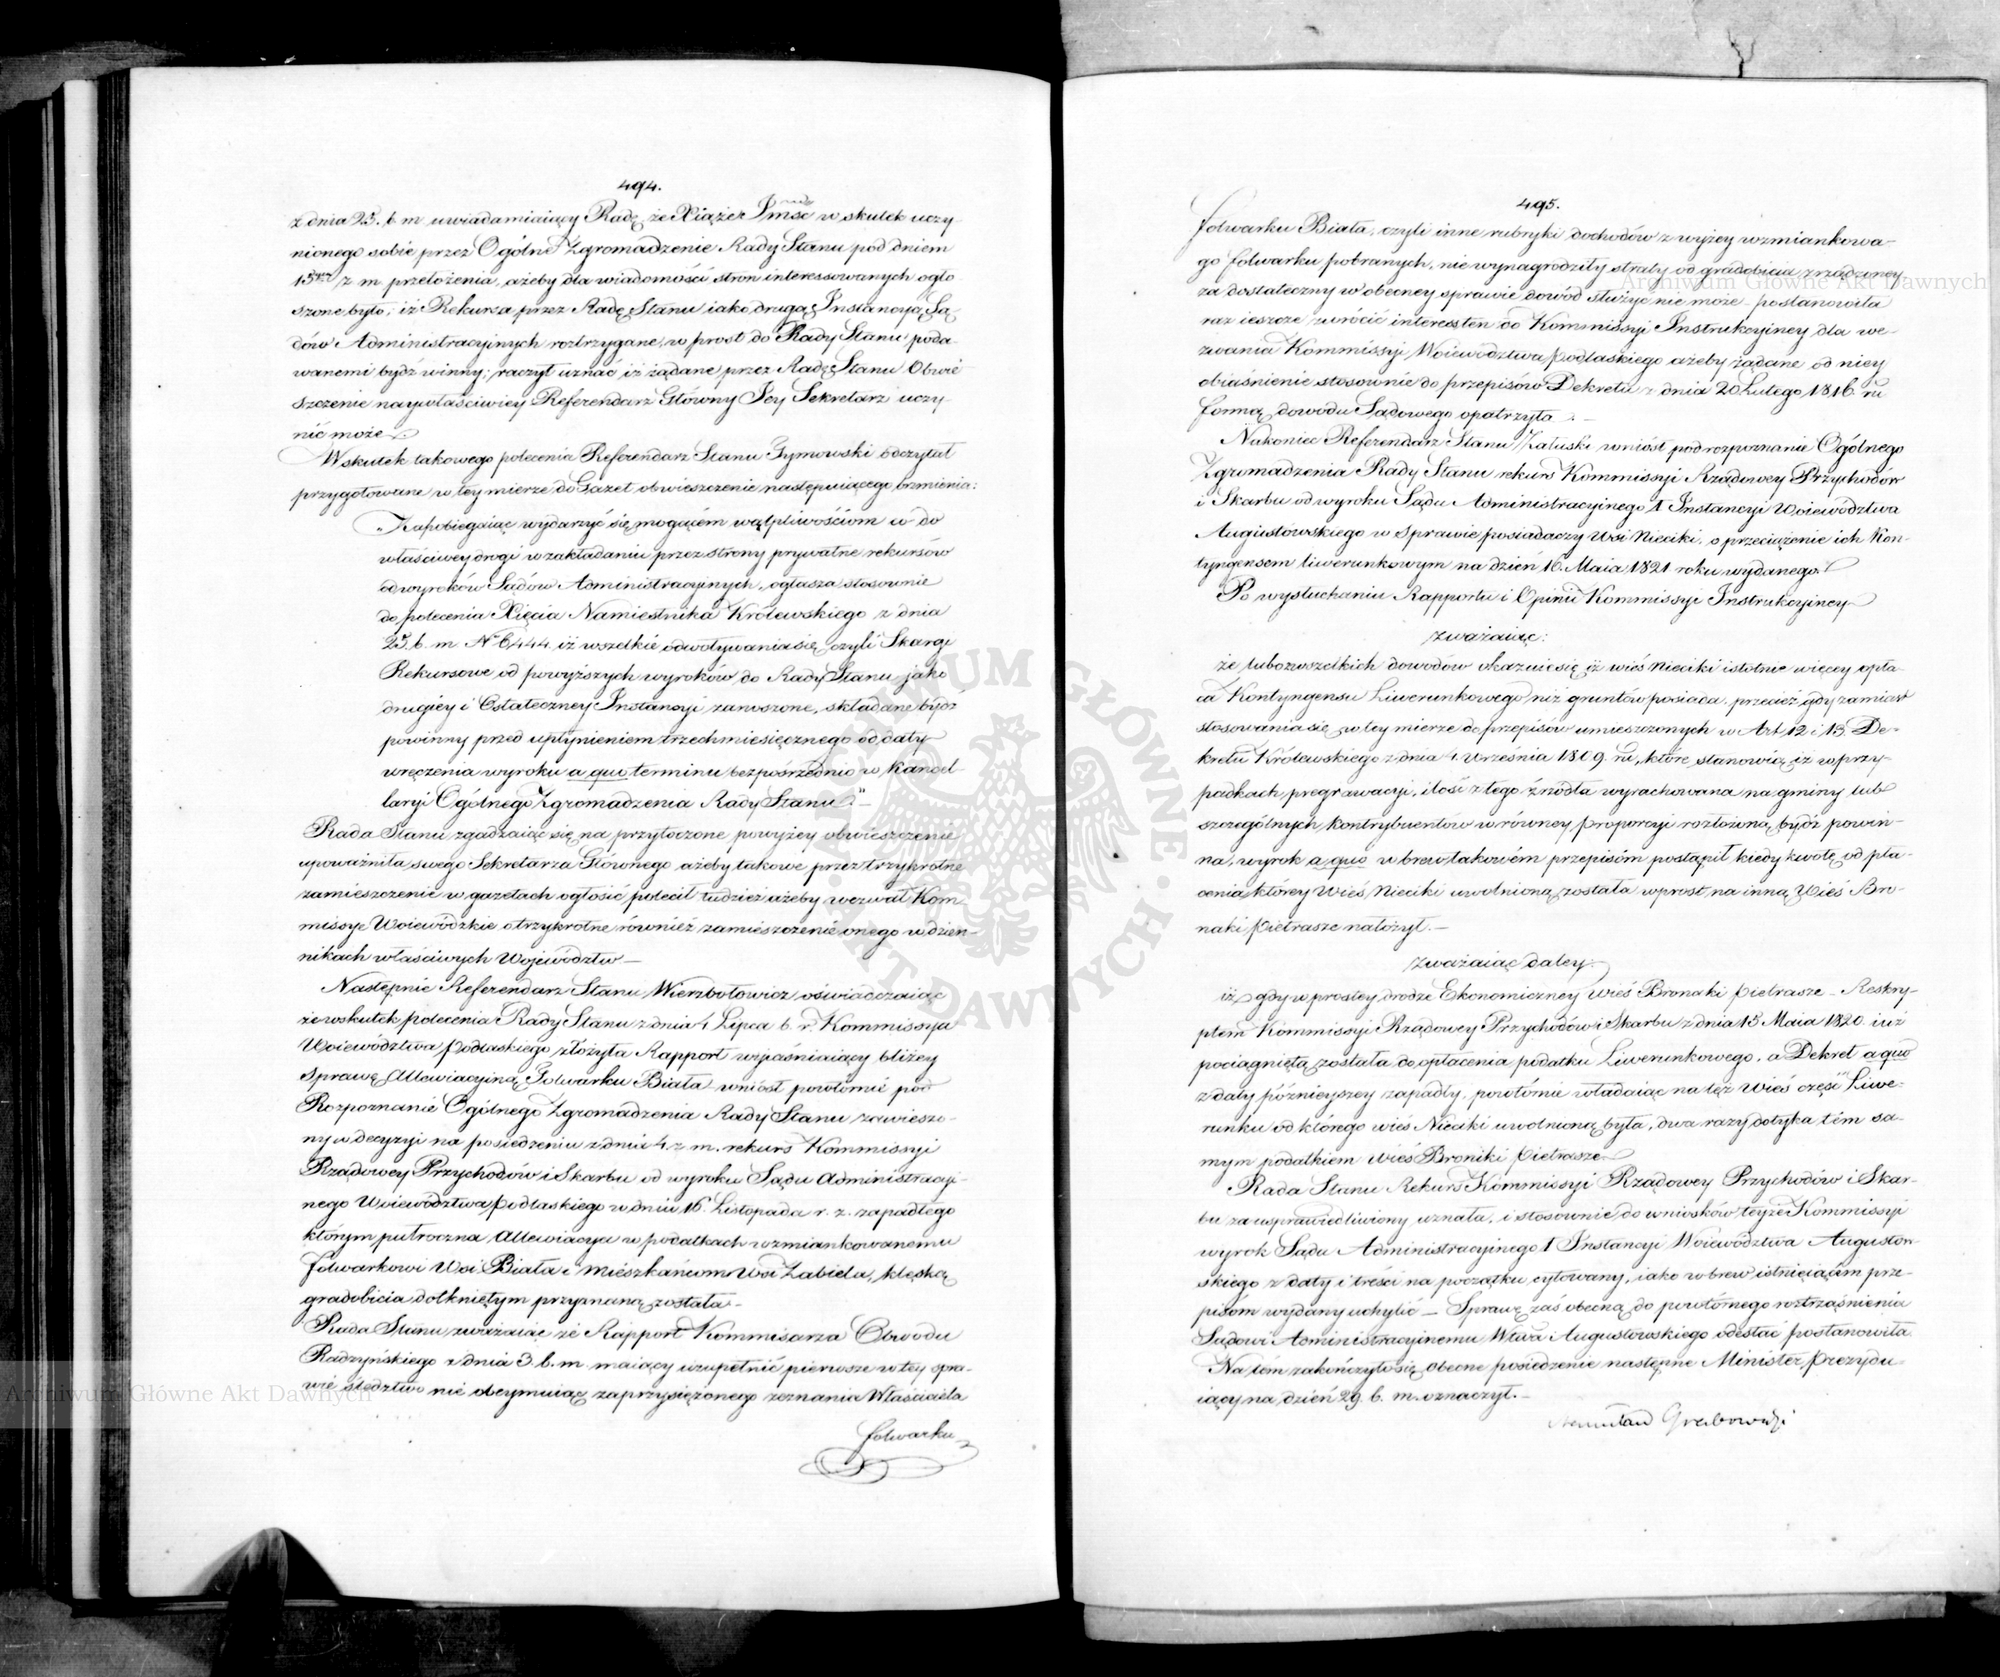 494.
z dnia 23. b. m. uwiadamiaiący Radę, że Xiąże Jmść w skutek uczy-
nionego sobie przez Ogólne Zgromadzenie Rady Stanu pod dniem
z. m. przełożenia, ażeby dla wiadomości stron interessowanych ogło-
szone było, iż Rekursa przez Radę Stanu iako drugą Instancyą Są-
dów Administracyjnych roztrzygane, w prost do Rady Stanu poda-
wanemi bydź winny; raczył uznać iż żądane przez Radę Stanu Obwie-
szczenie naywłaściwiey Referendarz Główny Jey Sekretarz uczy-
nić może.
W skutek takowego polecenia Referendarz Stanu Tymowski odczytał
przygotowane w tey mierze do Gazet obwieszczenie następuiącego brzmienia:
„Zapobiegaiąc wydarzyć się mogącem wątpliwościom w do
właściwey drogi w zakładaniu przez strony prywatne rekursów
od wyroków Sądów Administracyjnych, ogłasza stosownie
do polecenia Xięcia Namiestnika Królewskiego z dnia
23. b. m. No 6444. iż wszelkie odwoływania się, czyli Skargi
Rekursowe od powyższych wyroków do Rady Stanu, jako
drugiey i Ostateczney Instancyi zanoszone, składane bydź
powinny przed upłynieniem trzechmiesięcznego od daty
wręczenia wyroku a quo terminu bezpośrednio w Kancel-
laryi Ogólnego Zgromadzenia Rady Stanu."—
Rada Stanu zgadzaiąc się na przytoczone powyżey obwieszczenie
upoważniła swego Sekretarza Głównego ażeby takowe przez trzykrotne
zamieszczenie w gazetach ogłosić polecił tudzież ażeby wezwał Kom-
missye Woiewódzkie o trzykrotne również zamieszczenie onego w dzien-
nikach właściwych Województw—
Następnie Referendarz Stanu Wierzbołowicz oświadczaiąc
że w skutek polecenia Rady Stanu z dnia 4 Lipca b. r. Kommissya
Woiewództwa Podlaskiego złożyła Rapport wyjaśniaiący bliżey
Sprawę Allewiacyiną Folwarku Biała wniósł powtórnie pod
Rozpoznanie Ogólnego Zgromadzenia Rady Stanu zawieszo-
ny w decyzyi na posiedzeniu z dnia 4. z. m. rekurs Kommissyi
Rządowey Przychodów i Skarbu od wyroku Sądu Administracyi-
nego Woiewództwa Podlaskiego w dniu 16. Listopada r. z. zapadłego
którym putroczna Allewiacya w podatkach wzmiankowanemu
folwarkowi Wsi Biała i mieszkańcom Wsi Zabiela, klęską
gradobicia dotkniętym przyznaną została.
Rada Stanu zważaiąc że Rapport Kommisarza Obwodu
Radzyńskiego z dnia 3. b. m. maiący uzupełnić pierwsze w tey spra-
wie śledztwo nie obeymuiąc zaprzysiężonego zeznania Właściciela
folwarku
495.
folwarku Biała, czyli inne rubryki dochodów z wyżey wzmiankowa-
go folwarku pobranych, nie wynagrodziły straty od gradobicia zrządzoney,
za dostateczny w obecney sprawie dowód służyć nie może postanowiła
raz ieszcze zwrócić interessten do Kommissyi Instrukcyiney dla we-
zwania Kommissyi Woiewództwa Podlaskiego ażeby żądane od niey
obiaśnienie stosownie do przepisów Dekretu z dnia 20. Lutego 1816. ru
formą dowodu Sądowego opatrzyła.—
Nakoniec Referendarz Stanu Załuski wniósł pod rozpoznanie Ogólnego
Zgromadzenia Rady Stanu rekurs Kommissyi Rządowey Przychodów
i Skarbu od wyroku Sądu Administracyinego 1 Instancyi Woiewództwa
Augustowskiego w Sprawie posiadaczy Wsi Nieciki, o przeciążenie ich Kon-
tyngensem liwerunkowym na dzień 16. Maia 1821 roku wydanego.
Po wysłuchaniu Rapportu i Opinii Kommissyi Instrukcyiney
zważaiąc:
że lubo z wszelkich dowodów okazuie się iż wieś Nieciki istotnie więcey opła-
ca Kontyngensu Liwerunkowego niż gruntów posiada, przecież gdy zamiast
stosowania się w tey mierze do przepisów umieszczonych w Art. 12 i 13. De-
kretu Królewskiego z dnia 1. Września 1809. ru, które stanowią iż w przy-
padkach pregrawacyi, ilość z tego źródła wyrachowana na gminy lub
szczególnych kontrybuentów w równey proporcyi rozłożoną bydź powin-
na, wyrok a quo w brew takowém przepisóm postąpił kiedy kwotę od pła-
cenia którey Wieś Nieciki uwolnioną została wprost na inną Wieś Bro-
naki Pietrasze nałożył.—
zważaiąc daley:
iż gdy w prostey drodze Ekonomiczney Wieś Bronaki Pietrasze Reskry-
ptem Kommissyi Rządowey Przychodów i Skarbu z dnia 13 Maia 1820 iuż
pociągniętą została do opłacenia podatku Liwerunkowego, a Dekret a quo
z daty późnieyszey zapadły, powtórnie wkładaiąc na też Wieś część Liwe-
runku od którego wieś Nieciki uwolnioną była, dwa razy dotyka tém sa-
mym podatkiem Wieś Broniki Pietrasze.
Rada Stanu Rekurs Kommissyi Rządowey Przychodów i Skar-
bu za usprawiedliwiony uznała, i stosownie do wniosków teyże Kommissyi
wyrok Sądu Administracyinego 1 Instancyi Woiewództwa Augustow-
skiego z daty i treści na początku cytowany, iako w brew istnieiącem prze-
pisóm wydany uchylić— Sprawę zaś obecną do powtórnego roztrząśnienia
Sądowi Administracyinemu Wtwa Augustowskiego odesłać postanowiła.
Na tem zakończyło się obecne posiedzenie następne Minister Prezydu-
iący na dzień 29. b. m. oznaczył.—
Stanisław Grabowski
Archiwum Główne Akt Dawnych
Archiwum Główne Akt Dawnych
ARCHIWUM GŁÓWNE AKT DAWNYCH